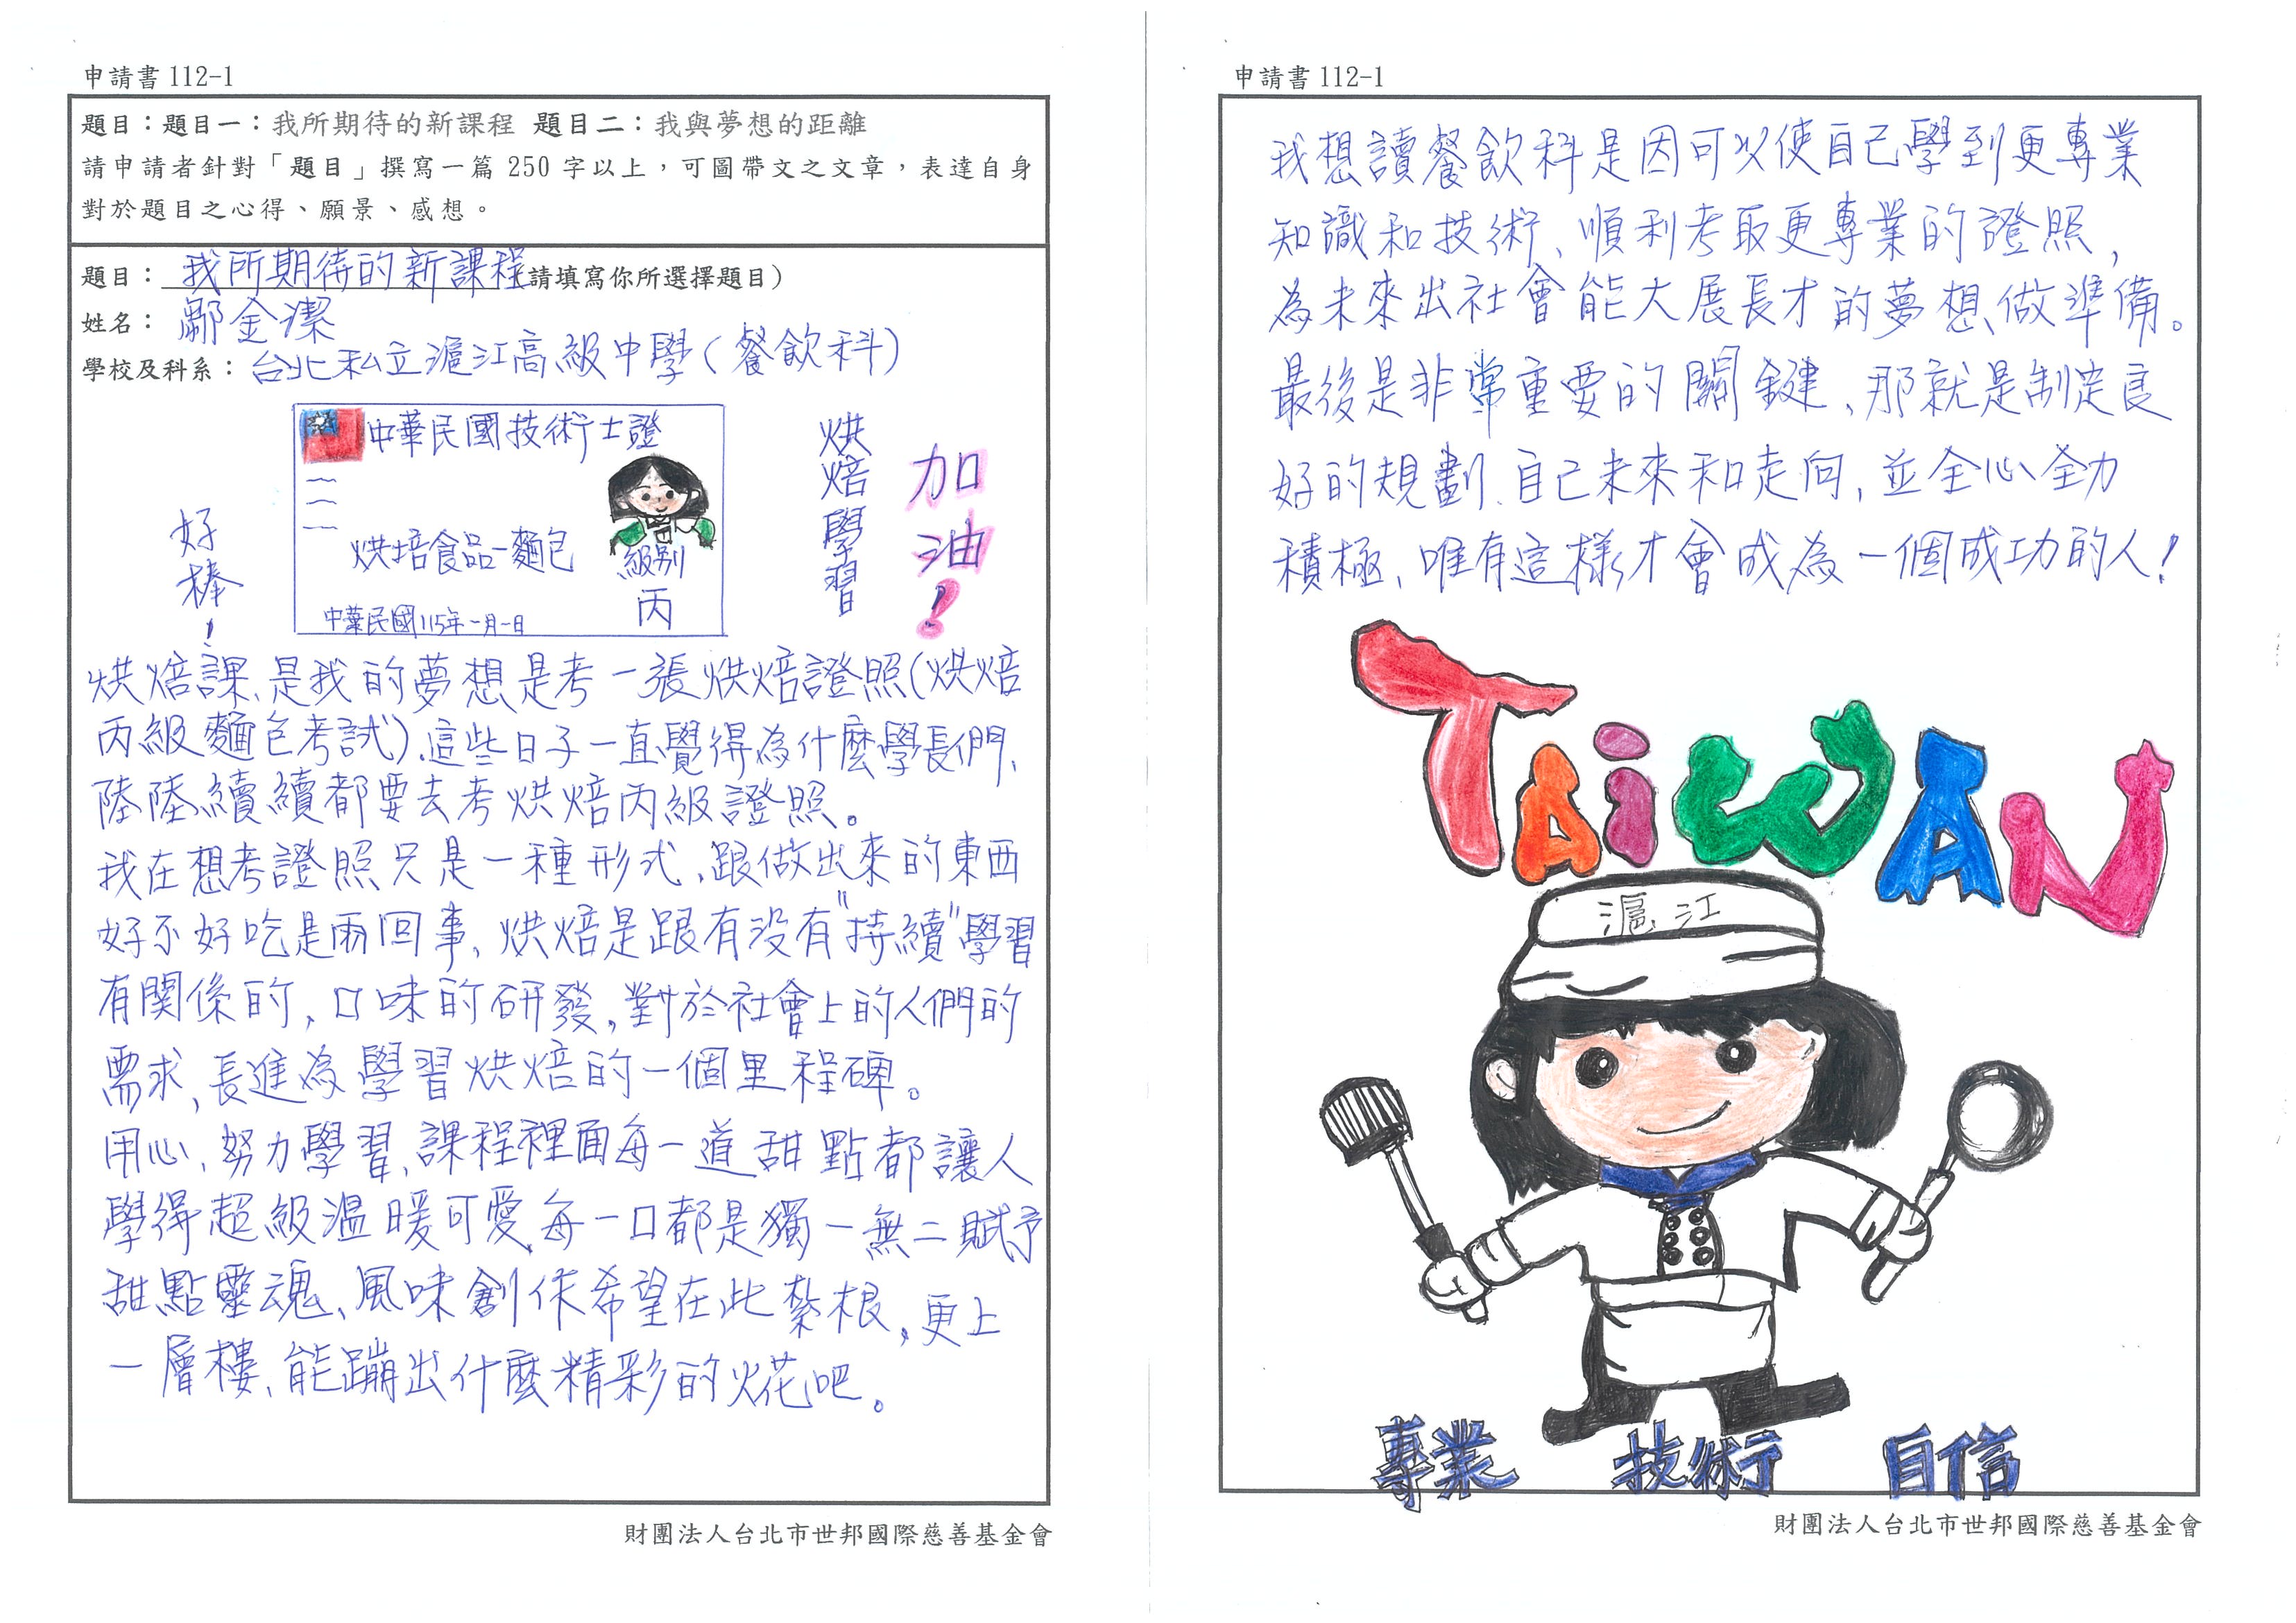 申請書 112-1
題目：題目一：我所期待的新課程 題目二：我與夢想的距離
請申請者針對「題目」撰寫一篇 250 字以上，可圖帶文之文章，表達自身
對於題目之心得、願景、感想。
題目：我所期待的新課程(請填寫你所選擇題目)
姓名：鄢金潔
學校及科系：台北私立滬江高級中學(餐飲科)
中華民國技術士證
烘培食品-麵包
級別
丙
中華民國115年一月一日
好棒！
烘焙學習
加油！
烘焙課、是我的夢想是考一張烘焙證照(烘焙
丙級麵包考試)、這些日子一直覺得為什麼學長們、
陸陸續續都要去考烘焙丙級證照。
我在想考證照只是一種形式、跟做出來的東西
好不好吃是兩回事、烘焙是跟有沒有"持續"學習
有關係的，口味的研發，對於社會上的人們的
需求，長進為學習烘焙的一個里程碑。
用心、努力學習、課程裡面每一道甜點都讓人
學得超級溫暖可愛、每一口都是獨一無二賦予
甜點靈魂、風味創作希望在此紮根，更上
一層樓、能蹦出什麼精彩的火花吧。
財團法人台北市世邦國際慈善基金會
申請書 112-1
我想讀餐飲科是因可以使自己學到更專業
知識和技術、順利考取更專業的證照，
為未來出社會能大展長才的夢想做準備。
最後是非常重要的關鍵、那就是制定良
好的規劃、自己未來和走向，並全心全力
積極、唯有這樣才會成為一個成功的人！
TAiWAN
滬江
專業 技術 自信
財團法人台北市世邦國際慈善基金會